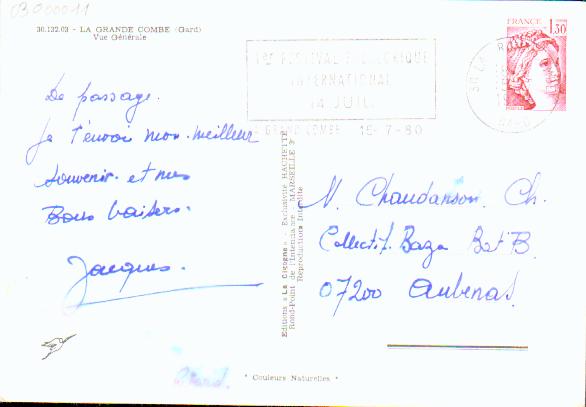 0300001
30.132.03 - LA GRANDE COMBE (Gard)
Vue Générale
FRANCE
1,30
1er FESTIVAL FOLKLORIQUE
INTERNATIONAL
14 JUIL
GRAND COMBE 15-7-80
De passage.
Je t'envoi mon meilleur
souvenir. et mes
Bons baisers.
Jacques.
Editions « La Cigogne » - Exclusivité HACHETTE
Rond-Point de l'Intendance, MARSEILLE 3e
Reproductions Interdite
M. Chaudanson. Ch.
Collectif. Baza Bat B.
07200 Aubenas.
* Couleurs Naturelles *